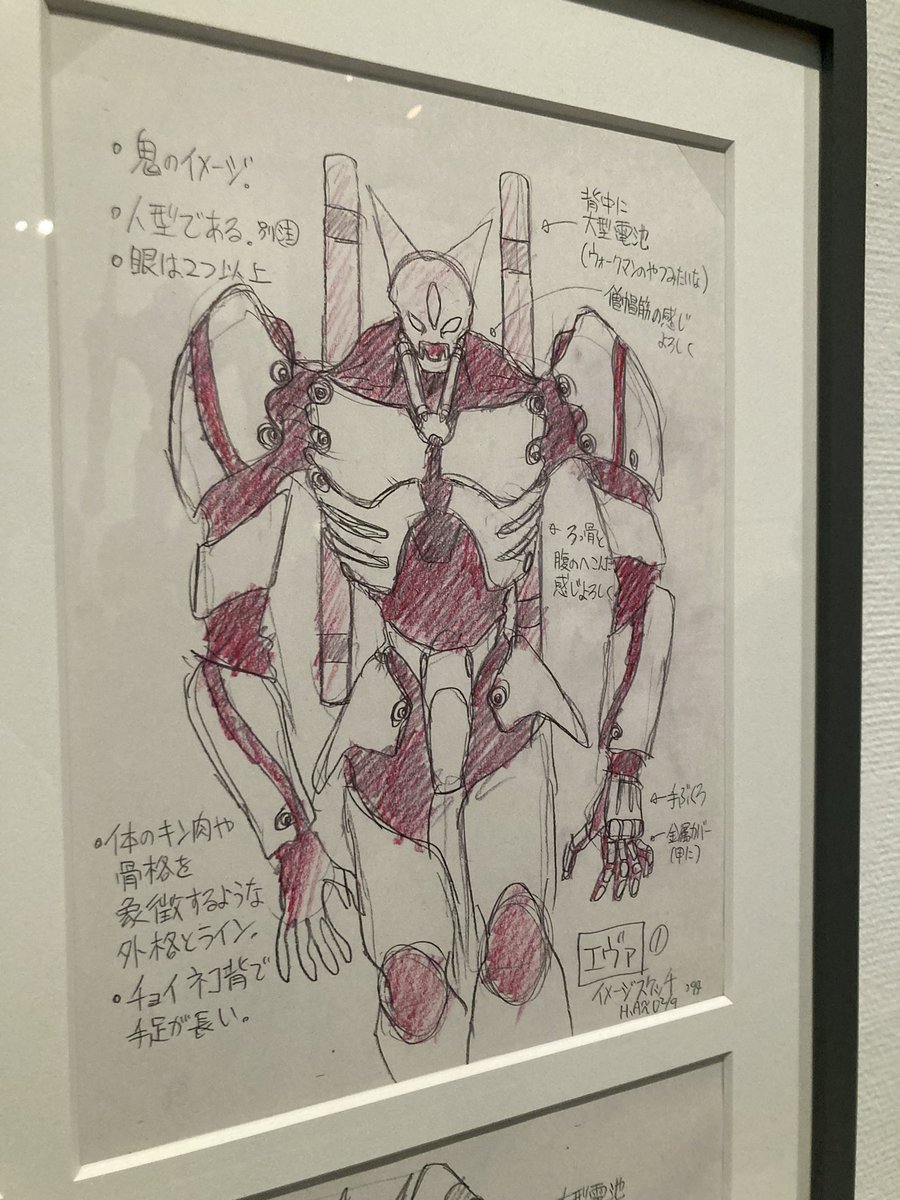 ・鬼のイメージ。
・人型である。別注
・眼は2つ以上
背中に
大型電池
(ウォークマンのやつみたいな)
僧帽筋の感じ
よろしく
ろっ骨と
腹のへこんだ
感じよろしく
・体のキン肉や
骨格を
象徴するような
外格とライン。
・チョイネコ背で
手足が長い。
手ぶくろ
金属カバー
(甲に)
エヴァ ①
イメージスケッチ
'94
大型電池